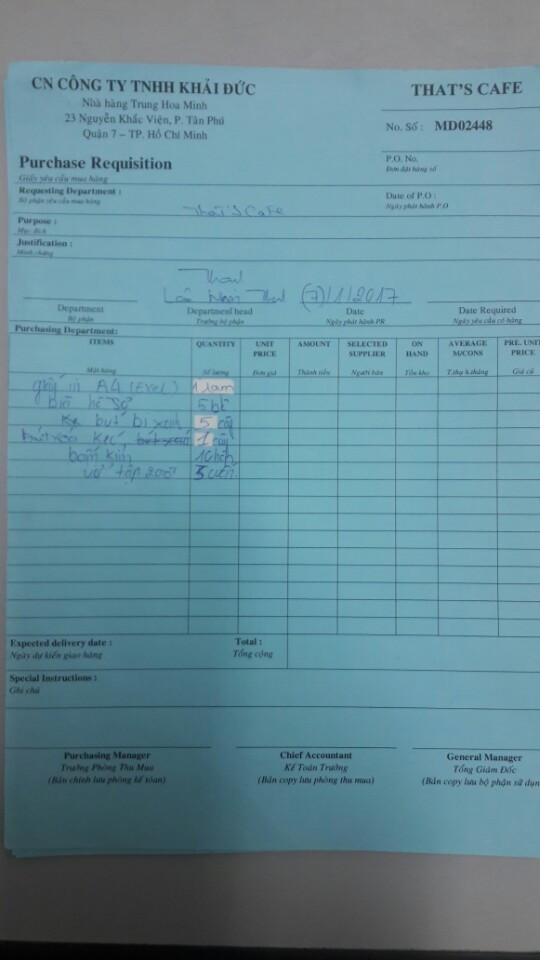 CN CÔNG TY TNHH KHẢI ĐỨC
Nhà hàng Trung Hoa Minh
23 Nguyễn Khắc Viện, P. Tân Phú
Quận 7 – TP. Hồ Chí Minh
THAT'S CAFE
No. Số : MD02448
Purchase Requisition
Giấy yêu cầu mua hàng
P.O. No.
Đơn đặt hàng số
Requesting Department :
Bộ phận yêu cầu mua hàng
That's Cafe
Date of P.O :
Ngày phát hành P.O
Purpose :
Mục đích
Justification :
Minh chứng
(7)/1/2017
Department
Bộ phận
Department head
Trưởng bộ phận
Date
Ngày phát hành PR
Date Required
Ngày yêu cầu có hàng
Purchasing Department:
ITEMS QUANTITY UNIT PRICE AMOUNT SELECTED SUPPLIER ON HAND AVERAGE M/CONS PRE. UNIT PRICE
Mặt hàng Số lượng Đơn giá Thành tiền Người bán Tồn kho T.thụ h.tháng Giá cũ
giấy in A4 (Excel) 1 ram
bìa hồ sơ 5 bì
bút bi xanh 5 cây
1 cây
bấm kim 1 hộp
vở tập 200 5 cuốn
Expected delivery date :
Ngày dự kiến giao hàng
Total :
Tổng cộng
Special Instructions :
Ghi chú
Purchasing Manager
Trưởng Phòng Thu Mua
(Bản chính lưu phòng kế tóan)
Chief Accountant
Kế Toán Trưởng
(Bản copy lưu phòng thu mua)
General Manager
Tổng Giám Đốc
(Bản copy lưu bộ phận sử dụn